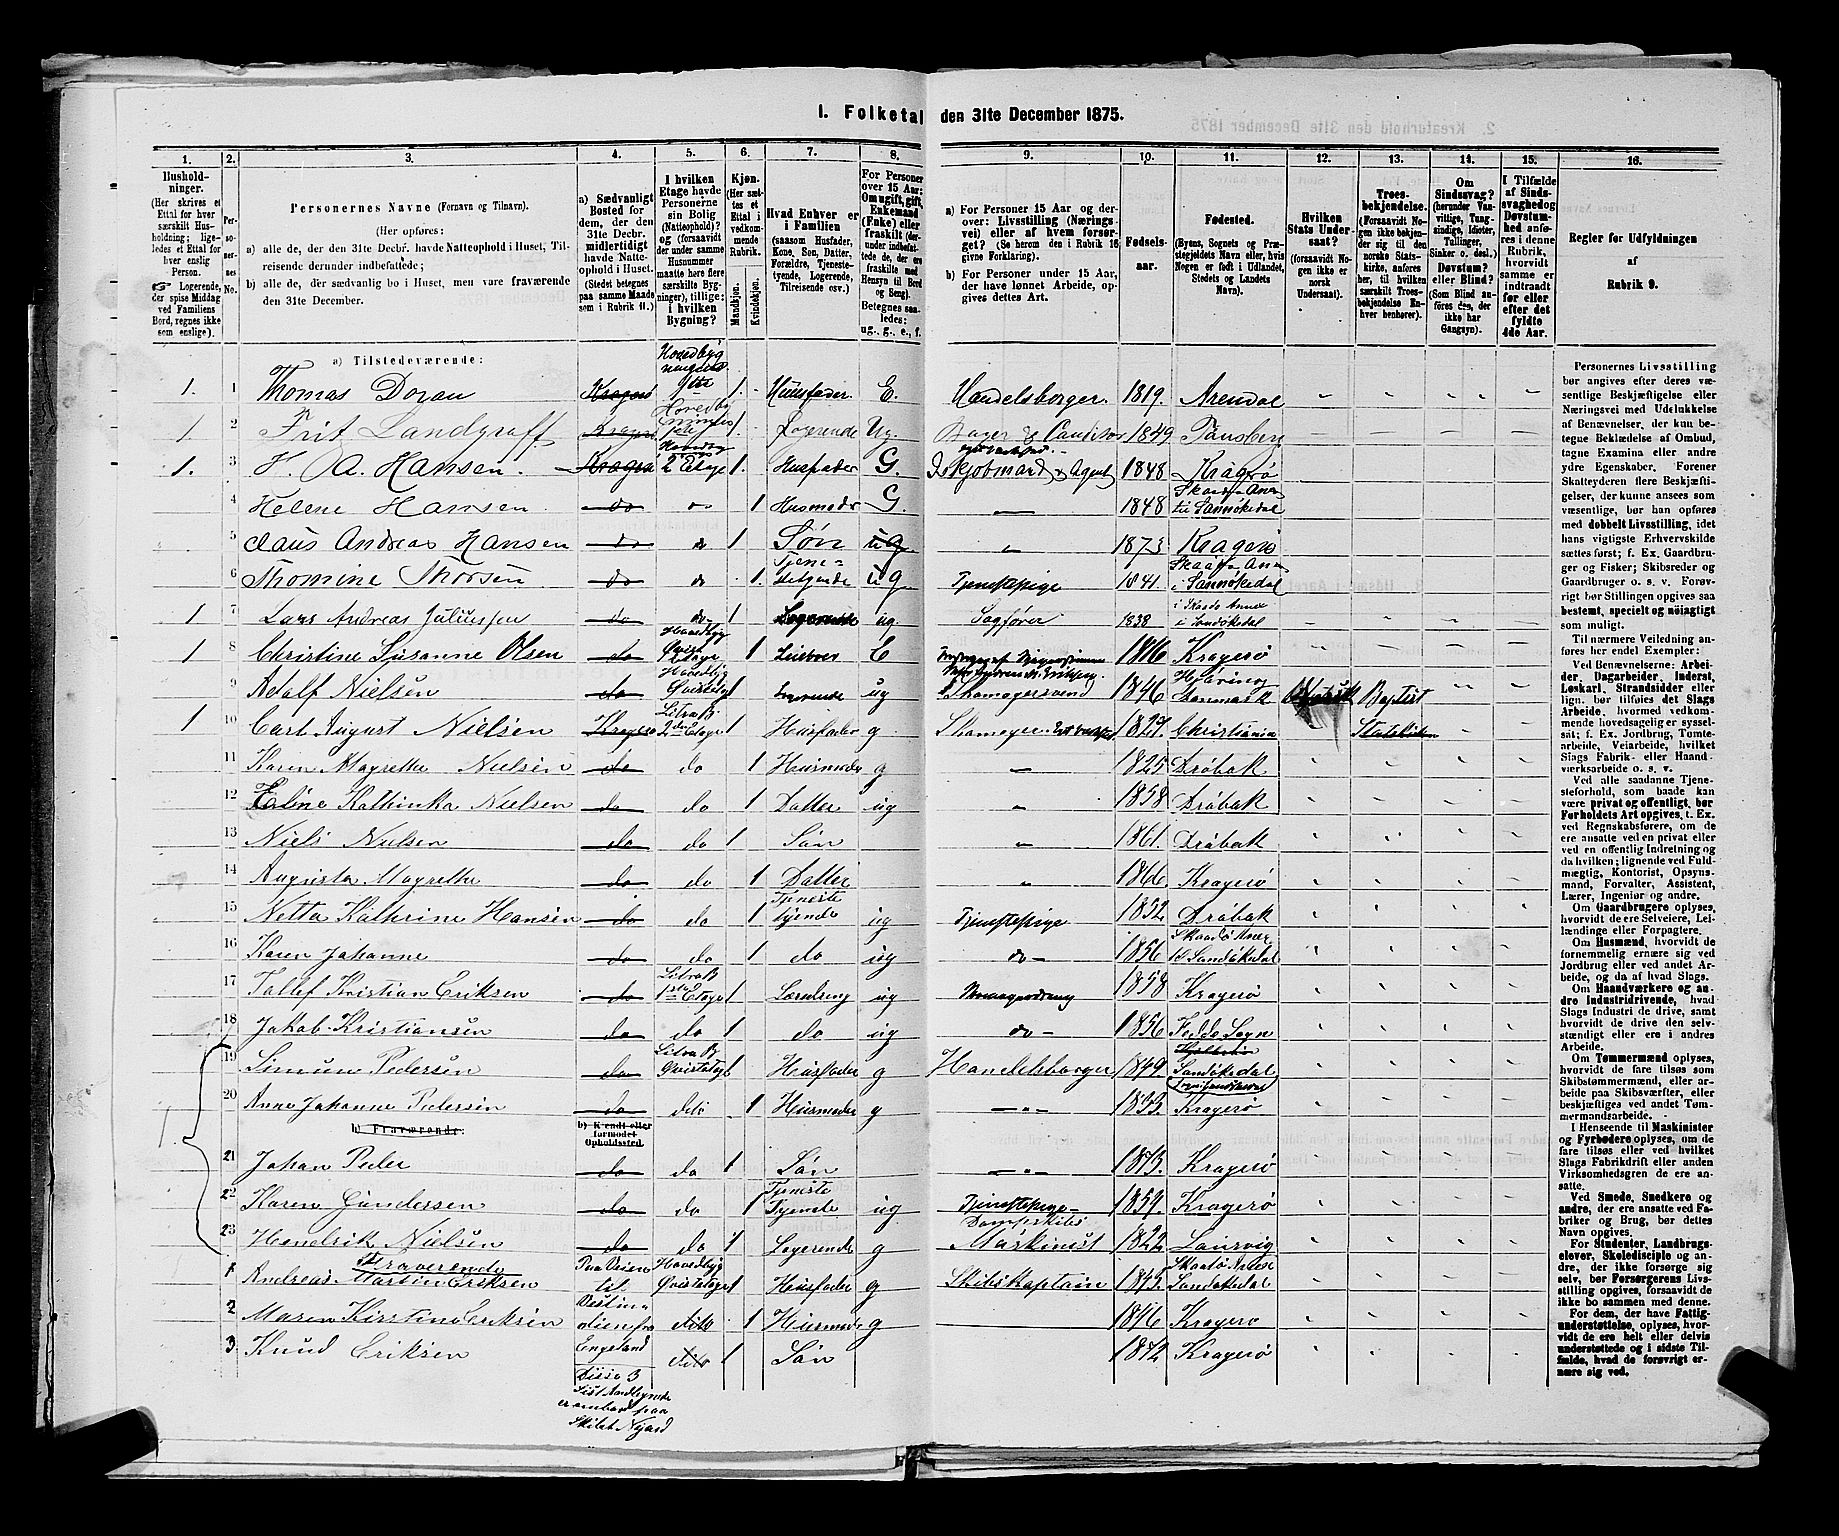 1. Folketal den 31te December 1875.
1. 2. 3. 4. 5. 6. 7. 8. 9. 10. 11. 12. 13. 14. 15. 16.
Hushold-
ninger.
(Her skrives et
Ettal for hver
særskilt Hus-
holdning; lige-
ledes et Ettal for
hver enslig
Person.
Logerende,
der spise Middag
ved Familiens
Bord, regnes ikke
som enslige).
Personernes Navne (Fornavn og Tilnavn).
(Her opføres:
a) alle de, der den 31te Decbr. havde Natteophold i Huset, Til-
reisende derunder indbefattede;
b) alle de, der sædvanlig bo i Huset, men vare fraværende
den 31te December.
a) Sædvanligt
Bosted for
dem, der den
31te Decbr.
midlertidigt
havde Natte-
ophold i Huset.
(Stedet betegnes
paa samme Maade
som i Rubrik 11.)
I hvilken
Etage havde
Personerne
sin Bolig
(Natteophold)?
og (forsaavidt
der under samme
Husnummer
maatte høre flere
særskilte Byg-
ninger), tillige:
i hvilken
Bygning?
Kjøn.
(Her sæt-
tes et
Ettal i
vedkom-
mende
Rubrik.
Mandskjøn.
Kvindekjøn.
Hvad Enhver er
i Familien
(saasom Husfader,
Kone, Søn, Datter,
Forældre, Tjeneste-
tyende, Logerende,
Tilreisende osv.)
For Personer
over 15 Aar:
Om ugift, gift,
Enkemand
(Enke) eller
fraskilt
ug., g., e., f.
a) For Personer 15 Aar og der-
over: Livsstilling (Nærings-
vei) eller af hvem forsør-
get? (Se herom den i Rubrik 16
givne Forklaring).
b) For Personer under 15 Aar,
der have lønnet Arbeide, op-
gives dettes Art.
Fødsels-
aar.
Fødested.
(Byens, Sognets og Præ-
stegjeldets Navn eller, hvis
Nogen er født i Udlandet,
Stedets og Landets
Navn).
Hvilken
Stats Under-
saat?
(forsaavidt No-
gen ikke er
norsk
Undersaat).
Troes-
bekjendelse.
(Forsaavidt No-
gen ikke bekjen-
der sig til den
norske Stats-
kirke, anføres
her, til hvilken
særskilt Troes-
bekjendelse En-
hver henhører).
Om
Sindssvag?
(herunder Van-
vittige, Tung-
sindige, Idioter,
Tullinger,
Sinker o. desl.)
Døvstum?
eller Blind?
(Som Blind an-
føres den, der
ikke har
Gangsyn).
I Tilfælde
af Sinds-
svaghed og
Døvstum-
hed anfø-
res i denne
Rubrik,
hvorvidt
samme er
indtraadt
før eller
efter det
fyldte
4de Aar.
Regler for Udfyldningen
af
Rubrik 9.
a) Tilstedeværende:
1. 1 Thomas Doran Kragerø 1. Huusfader E. Handelsborger. 1819. Arendal
1 2 Frit Landgraff Kragerø 1. Logerende Ug. Bager & Conditor 1849 Tønsberg
1. 3 H. A. Hansen. Kragerø 2 Etage 1. Husfader G. & Agent 1848 Kragrø
4 Helene Hansen do 1 Husmoder G. 1848 Sannøkedal
5 Claus Andreas Hansen do 1 Søn ug 1873 Kragerø
6 Thomine Thorsen do 1. Tjene= ug Tjenestepige 1841. Sannøkedal
1 7 Lars Andreas Juliussen do do 1 Logerende ug. Sagfører 1838 Sandøkedal
1 8 Christine Susanne Olsen do 1 E 1816 Kragerø
9 Adolf Nielsen do Qvistetage 1 Logerende ug Skomagersvend 1846 Danmark Baptist
1 10 Carl August Nielsen Kragerø Litra B. 2den Etage 1 Husfader g Skomager 1827. Christiania Statskirken
11 Karen Magrethe Nielsen do do 1 Husmoder g 1825 Drøbak
12 Eline Kathinka Nielsen do do 1 Datter ug 1858 Drøbak
13 Niels Nielsen do do 1 Søn 1861. Drøbak
14 Augusta Magrethe do do 1 Datter 1866. Kragerø
15 Netta Kathrine Hansen do do 1 Tjeneste Tyende ug Tjenestepige 1852 Drøbak
16 Karen Johanne do do 1 do ug do 1856 Sandøkedal
17 Tallef Kristian Eriksen do Litra B 1ste Etage 1 Læredreng ug 1858 Kragerø
18 Jakob Kristiansen do do 1 do ug do 1856 Sogn
19 Simun Pedersen do Litra B Qvistetage 1 Husfader g Handelsborger 1849. Sandøkedal
20 Anne Johanne Pedersen do dito 1 Husmoder g 1853. Kragerø
b) Fraværende: b) Kjendt eller
formodet
Opholdssted.
1. 21 Johan Peder do do 1 Søn 1873. Kragerø
22 Karen Gundersen do do 1 Tjeneste Tyende ug Tjenestepige 1859. Kragerø
23 Hendrik Nielsen do do 1 Logerende g Dampskibs Maskinist 1822 Laurvig
Fraverende
1 Andreas Martin Eriksen Paa Reisen til Hovedbyg Qvistetage 1 Husfader g Skibskaptain 1843. Sandøkedal
2 Maren Kirstine Eriksen Vestindien fra dito 1 Husmoder g 1846 Kragerø
3 Knud Eriksen Engeland dito 1 Søn 1872 Kragerø
Disse 3
Sidst Anførte
er ombord paa
Skibet Njaard
Personernes Livsstilling
bør angives efter deres væ-
sentlige Beskjæftigelse eller
Næringsvei med Udelukkelse
af Benævnelser, der kun be-
tegne Beklædelse af Ombud,
tagne Examina eller andre
ydre Egenskaber. Forener
Skatteyderen flere Beskjæfti-
gelser, der kunne ansees som
væsentlige, bør han opføres
med dobbelt Livsstilling, idet
hans vigtigste Erhvervskilde
sættes først; f. Ex. Gaardbru-
ger og Fisker; Skibsreder og
Gaardbruger o. s. v. Forøv-
rigt bør Stillingen opgives saa
bestemt, specielt og nøiagtigt
som muligt.
Til nærmere Veiledning an-
føres her endel Exempler:
Ved Benævnelserne: Arbei-
der, Dagarbeider, Inderst,
Løskarl, Strandsidder eller
lign. bør tilføies det Slags
Arbeide, hvormed vedkom-
mende hovedsagelig er syssel-
sat; f. Ex. Jordbrug, Tomte-
arbeide, Veiarbeide, hvilket
Slags Fabrik- eller Haand-
værksarbeide o. s. v.
Ved alle saadanne Tjene-
steforhold, som baade kan
være privat og offentligt, bør
Forholdets Art opgives, t. Ex.
ved Regnskabsførere, om de
ere ansatte ved en privat eller
ved en offentlig Indretning og
da hvilken; lignende ved Fuld-
mægtig, Kontorist, Opsyns-
mand, Forvalter, Assistent,
Lærer, Ingeniør og andre.
Om Gaardbrugere oplyses,
hvorvidt de ere Selveiere, Lei-
lændinge eller Forpagtere.
Om Husmænd, hvorvidt de
fornemmelig ernære sig ved
Jordbrug eller ved andet Ar-
beide, og da af hvad Slags.
Om Haandværkere og an-
dre Industridrivende, hvad
Slags Industri de drive, samt
hvorvidt de drive den selv-
stændigt eller ere i andres
Arbeide.
Om Tømmermænd oplyses,
hvorvidt de fare tilsøs som
Skibstømmermænd, eller ar-
beide paa Skibsværfter, eller
beskjæftiges ved andet Tøm-
mermandsarbeide.
I Henseende til Maskinister
og Fyrbødere oplyses, om de
fare tilsøs eller ved hvilket
Slags Fabrikdrift eller anden
Virksomhedsgren de ere an-
satte.
Ved Smede, Snedkere og
andre, der ere ansatte ved Fa-
briker og Brug, bør dettes
Navn opgives.
For Studenter, Landbrugs-
elever, Skoledisciple og an-
dre, der ikke forsørge sig
selv, bør Forsørgerens Livs-
stilling opgives, forsaavidt de
ikke bo sammen med denne.
For dem, der have Fattig-
understøttelse, oplyses, hvor-
vidt de ere helt eller delvis
understøttede og i sidste Til-
fælde, hvad de forøvrigt er-
nære sig ved.